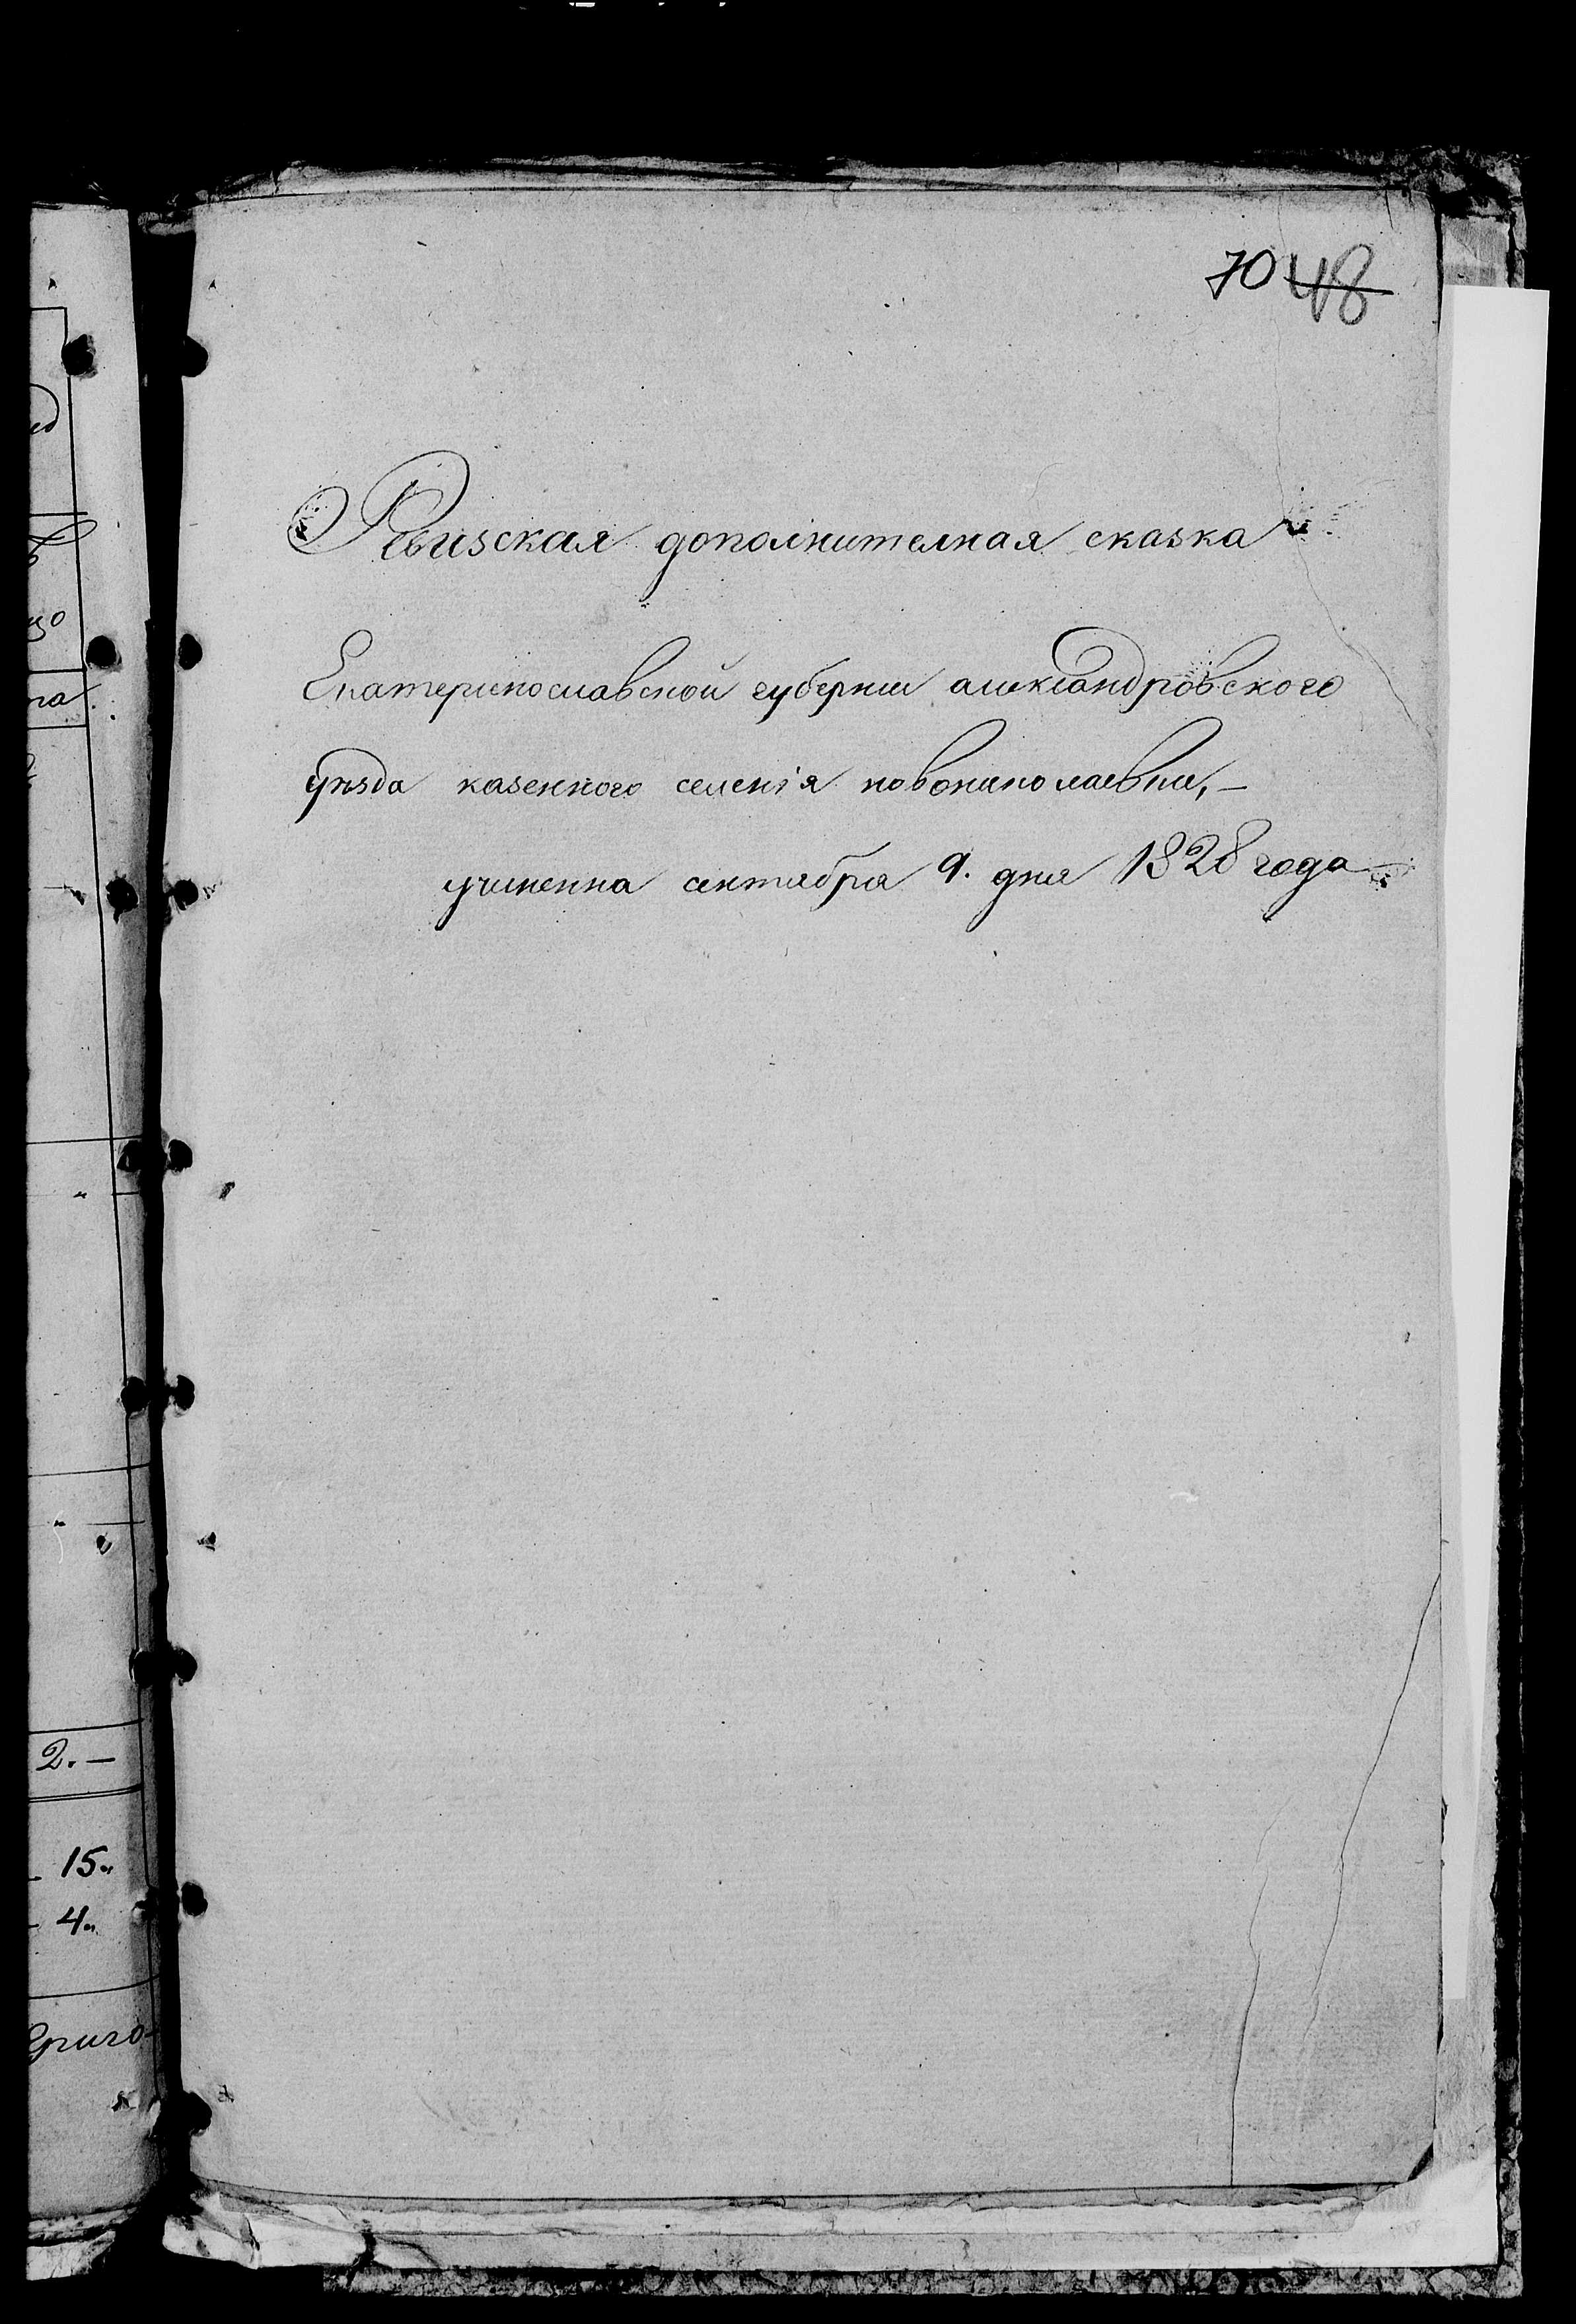 70 48
Ревизская дополнителная сказка
Екатеринославской губернии александровского
уѣзда казенного селенія новониколаевки,—
учиненна сентября 9. дня 1828 года
та
2.—
15
4
Григо-